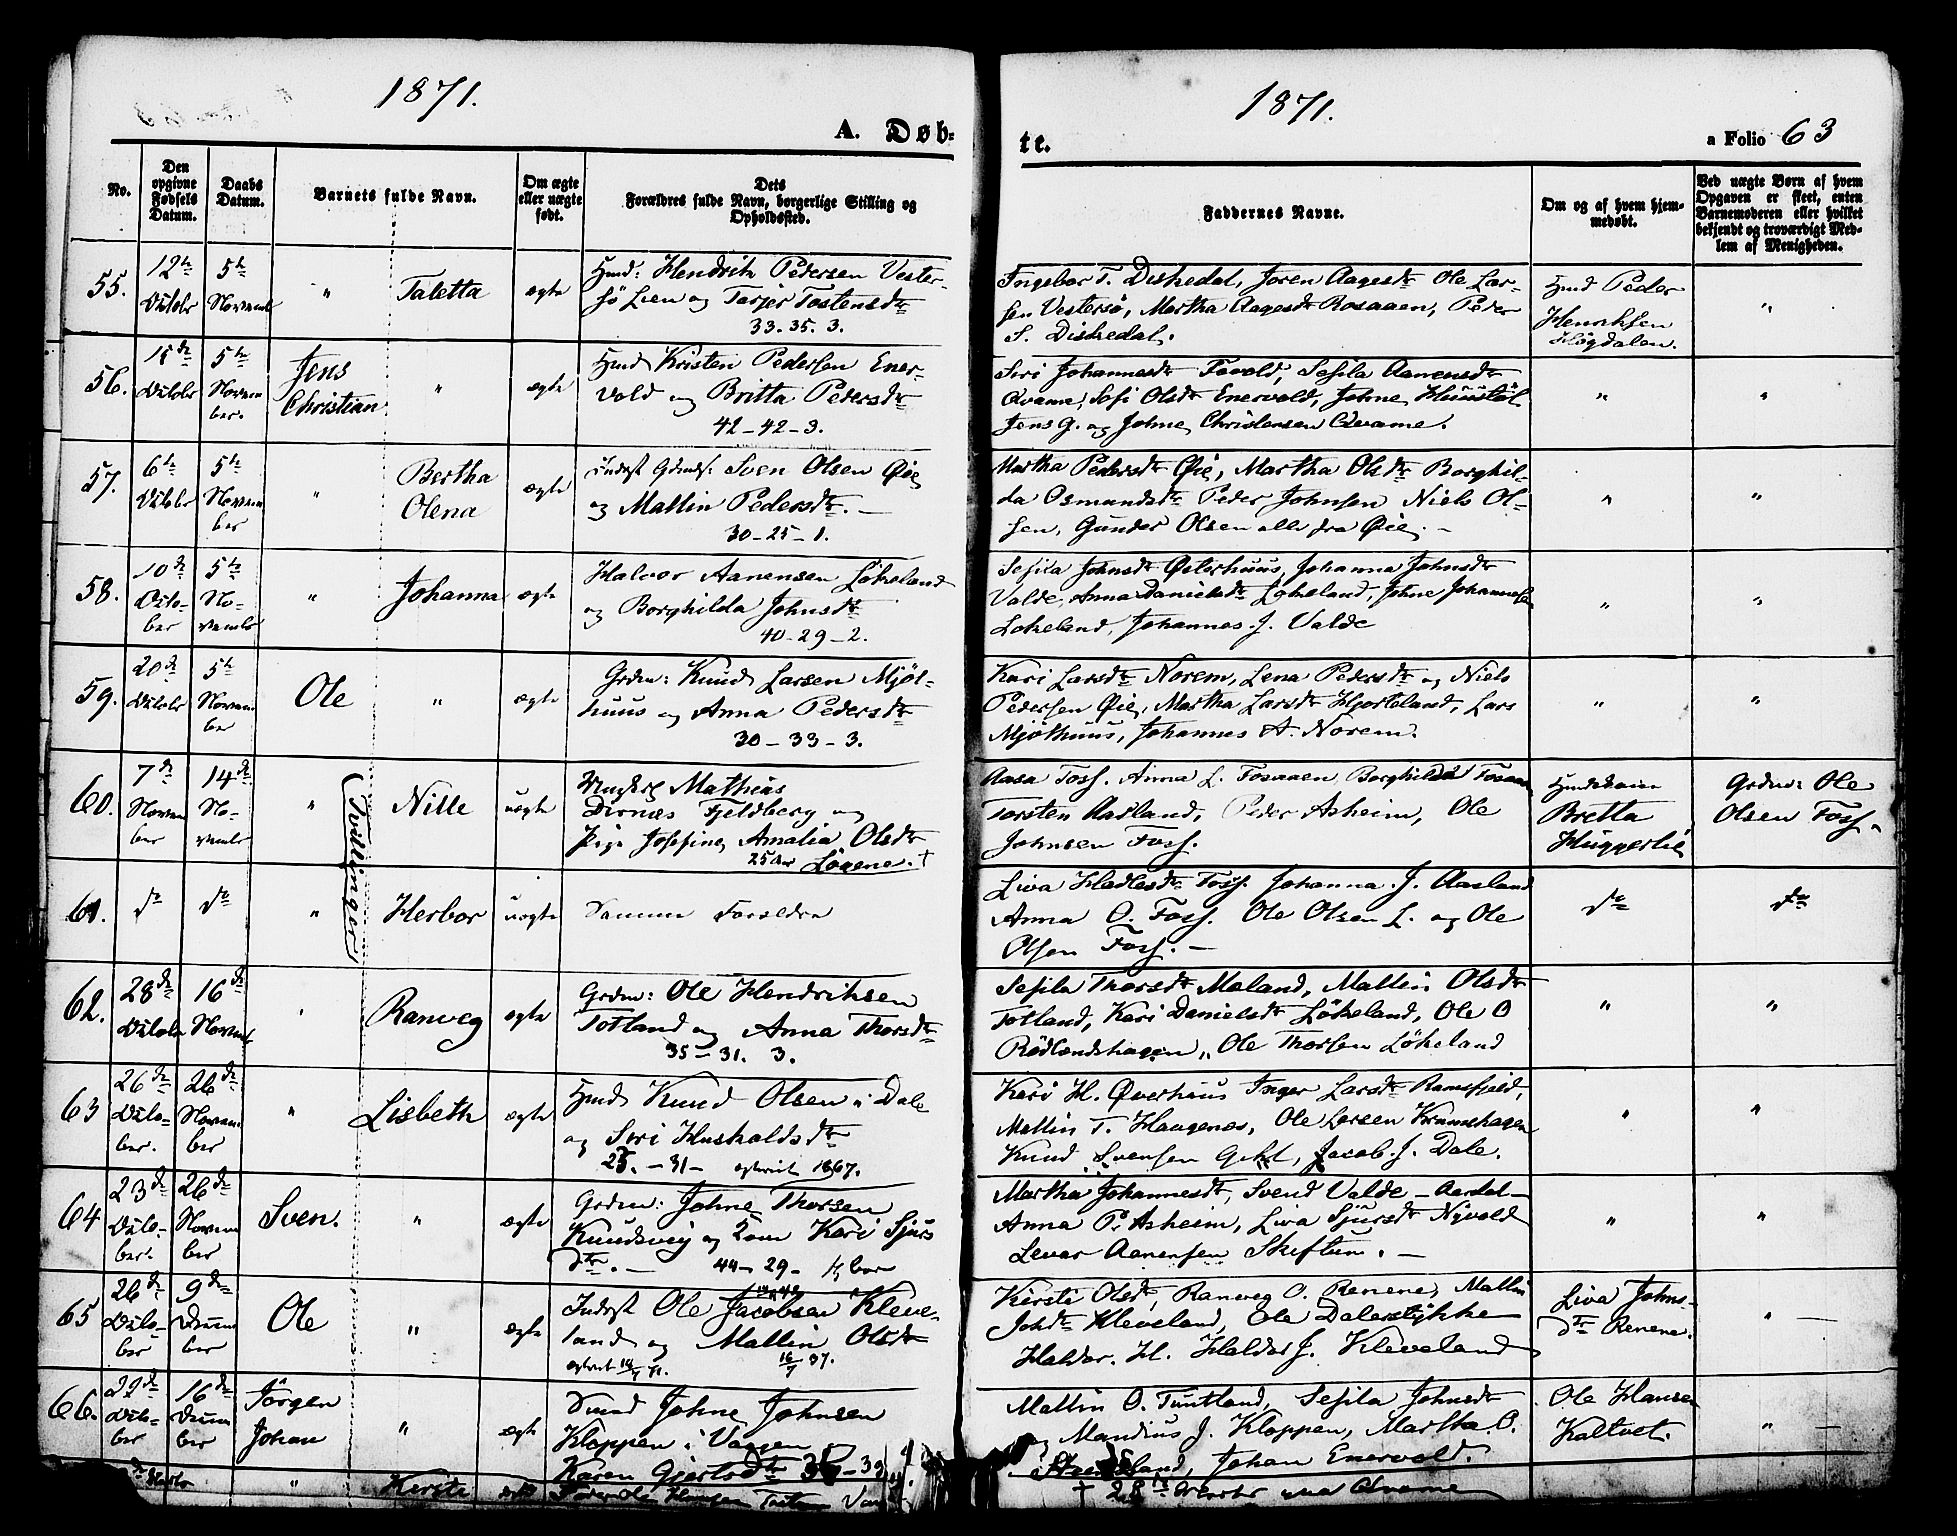 1871.
A. Døb-
No.
Den opgivne Fødsels Datum.
Daabs Datum.
Barnets fulde Navn.
Om ægte eller uægte født.
Dets Forældres fulde Navn, borgerlige Stilling og Opholdssted.
1871.
te.
a Folio 63
Faddernes Navne.
Om og af hvem hjemmedøbt.
Ved uægte Børn af hvem Opgaven er skeet, enten Barnemoderen eller hvilket bekjendt og troværdigt Medlem af Menigheden.
55. 12te Octobr 5te Novemb " Taletta ægte
Hmd: Hendrik Pedersen Vester-
sö Lien og Tarjer Tostensdtr
33. 35. 3.
Ingebor T. Diskedal, Joren Aagesdtr Ole Lar-
sen Vestersö, Martha Aagesdtr Rosaaen, Peder
S. Diskedal.
Hmd Peder
Henriksen
Högdalen.
"
56. 5te Novem ber. Jens Christian " ægte
Hmd Kristen Pedersen Ener-
vold og Britta Pedersdtr
42 - 42 - 3.
Siri Johannesdtr Fovold, Sesila Aanensdtr
Qvame, Sofi Olsdtr Enervold, Johne
Jens G. og Johne Christensen Qvame.
" "
57. 6te Octobr 5te Novem ber " Bertha Olena ægte
Inderst Gdmds: Sven Olsen Øie
og Mallin Pedersdtr. -
30 - 25 - 1.
Martha Pedersdtr Øie, Martha Olsdtr Borghil-
da Osmundsdtr Peder Johnsen Niels Ol-
sen, Gunder Olsen alle fra Øie. -
" "
58. 10de Octo- ber 5te No- vembr " Johanna ægte
Halvor Aanensen Lökeland
og Borghilda Johnsdtr
40 - 29 - 2.
Sesila Johnsdtr Østerhuus, Johanna Johnsdtr
Valde, Anna Danielsdtr Lökeland, Johne Johannesen
Lökeland, Johannes J. Valde
" "
59. 20de Octobr 5te Novem ber Ole " ægte
Grdm: Knud Larsen Mjöl-
huus og Anna Pedersdtr
30 - 33 - 3.
Kari Larsdtr Norem, Lena Pedersdtr og Niels
Pedersen Øie, Martha Larsdtr Hjorteland, Lars
Mjölhuus, Johannes A. Norem.
" "
60. 7de Novem ber 14de No- vembr " (Tvillinger) Nille uægte
Ungkrl Mathias
Dirnæs Fjeldberg og
Pige Josefine Amalia Olsdtr
25 Aar Lögene. +
Aasa Foss. Anna L. Fosaaen Borghilda Fosaaen
Torsten Aadland, Peder Asheim, Ole
Johnsen Foss.
Bretta
Huggerlie
Grdm: Ole
Olsen Foss.
61. do do " Herbor uægte
Samme Forældre
Liva Hadlesdtr Foss. Johanna J. Aasland
Anna O. Foss. Ole Olsen L. og Ole
Olsen Foss. -
do do
62. 28de Octobr 16de Novemb " Ranveg ægte
Grdm: Ole Hendriksen
Totland og Anna Thorsdtr
35 - 31. 3.
Sesila Thorsdtr Meland, Mallin Olsdtr
Totland, Kari Danielsdtr Lökeland, Ole O
Rödlandshagen, Ole Thorsen Lökeland
" "
63 26de Octo- ber. 26de Novem ber " Lisbeth ægte
Hmd Knud Olsen i Dale
og Siri Huskoldsdtr
25. - 31 - egteviet 1867.
Kari H. Øverhuus Inger Larsdtr Ramsfjeld,
Mallin T. Haugenæs, Ole Larsen Krunshagen
Knud Svensen, Jacob J. Dale.
" "
64 23de Octo- ber. 26de Novem ber Sven. " ægte
Grdm: Johne Thorsen
Knudsvig og Kone Kari Sjurs
dtr. - 44 - 29 -
Martha Johannesdtr, Svend Valde - Aardal -
Anna P. Asheim, Liva Sjursdtr Nyvold
Levar Aanensen Skiftun. -
" "
65 26de Octo- ber 9de Decem ber Ole " ægte
Inderst Ole Jacobsen Kleve-
land og Mallin Olsdtr
egteviet 14/7 71. 16/7 37.
Kirsti Olsdtr, Ranveg O. Renene, Mallin
Johdtr Kleveland, Ole Dalerstykke
Haldor. H. Haldor J. Kleveland
Liva Johns-
dtr Renene.
" -
66. 29de Octo- ber 16de Decem ber Jörgen Johan " ægte
Johne Johnsen
Kloppen i Vaagen
Karen Gjertsdtr 38 - 39
Mallin O. Tuntland, Sesila Johnsdtr
og Mandius J. Kloppen, Martha O.
land, Johan Enervold.
Ole Hansen
Kaltvet.
" -
" Kirsti ægte